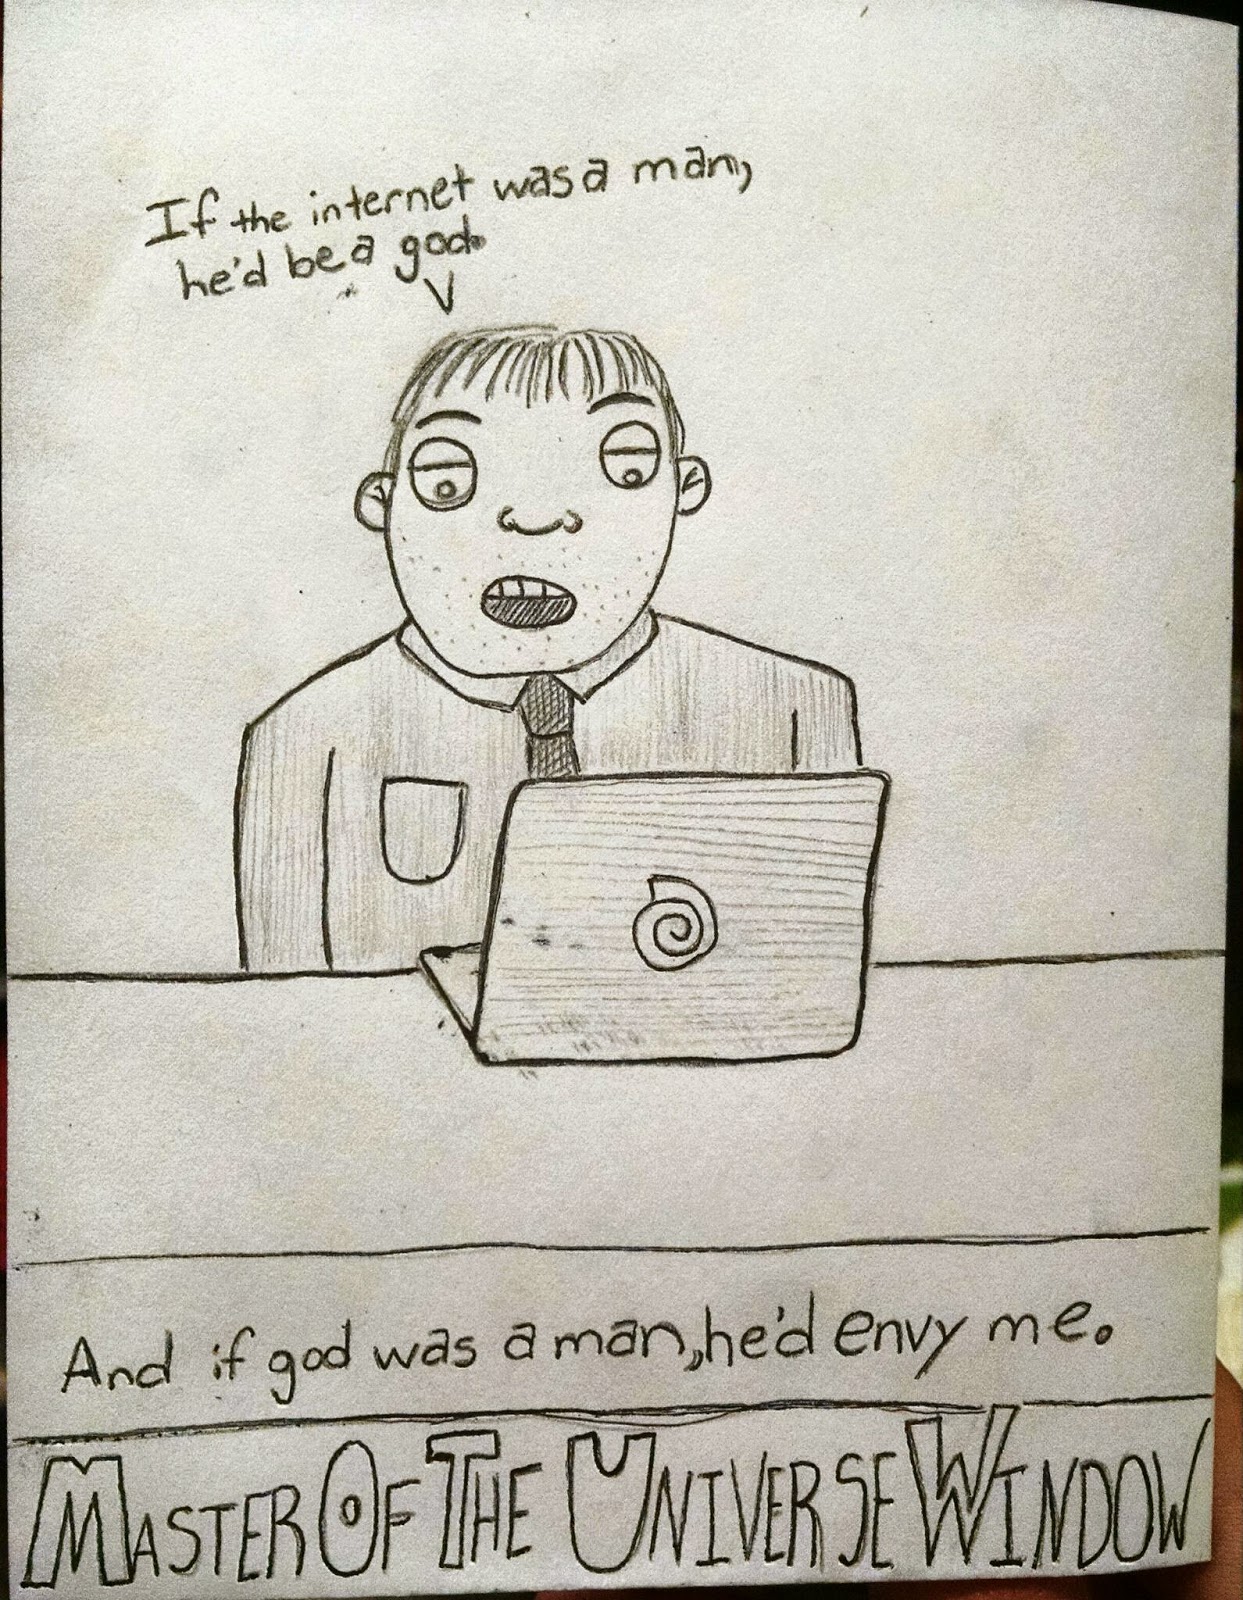 If the internet was a man,
he'd be a god.
And if god was a man, he'd envy me.
MASTER OF THE UNIVERSE WINDOW